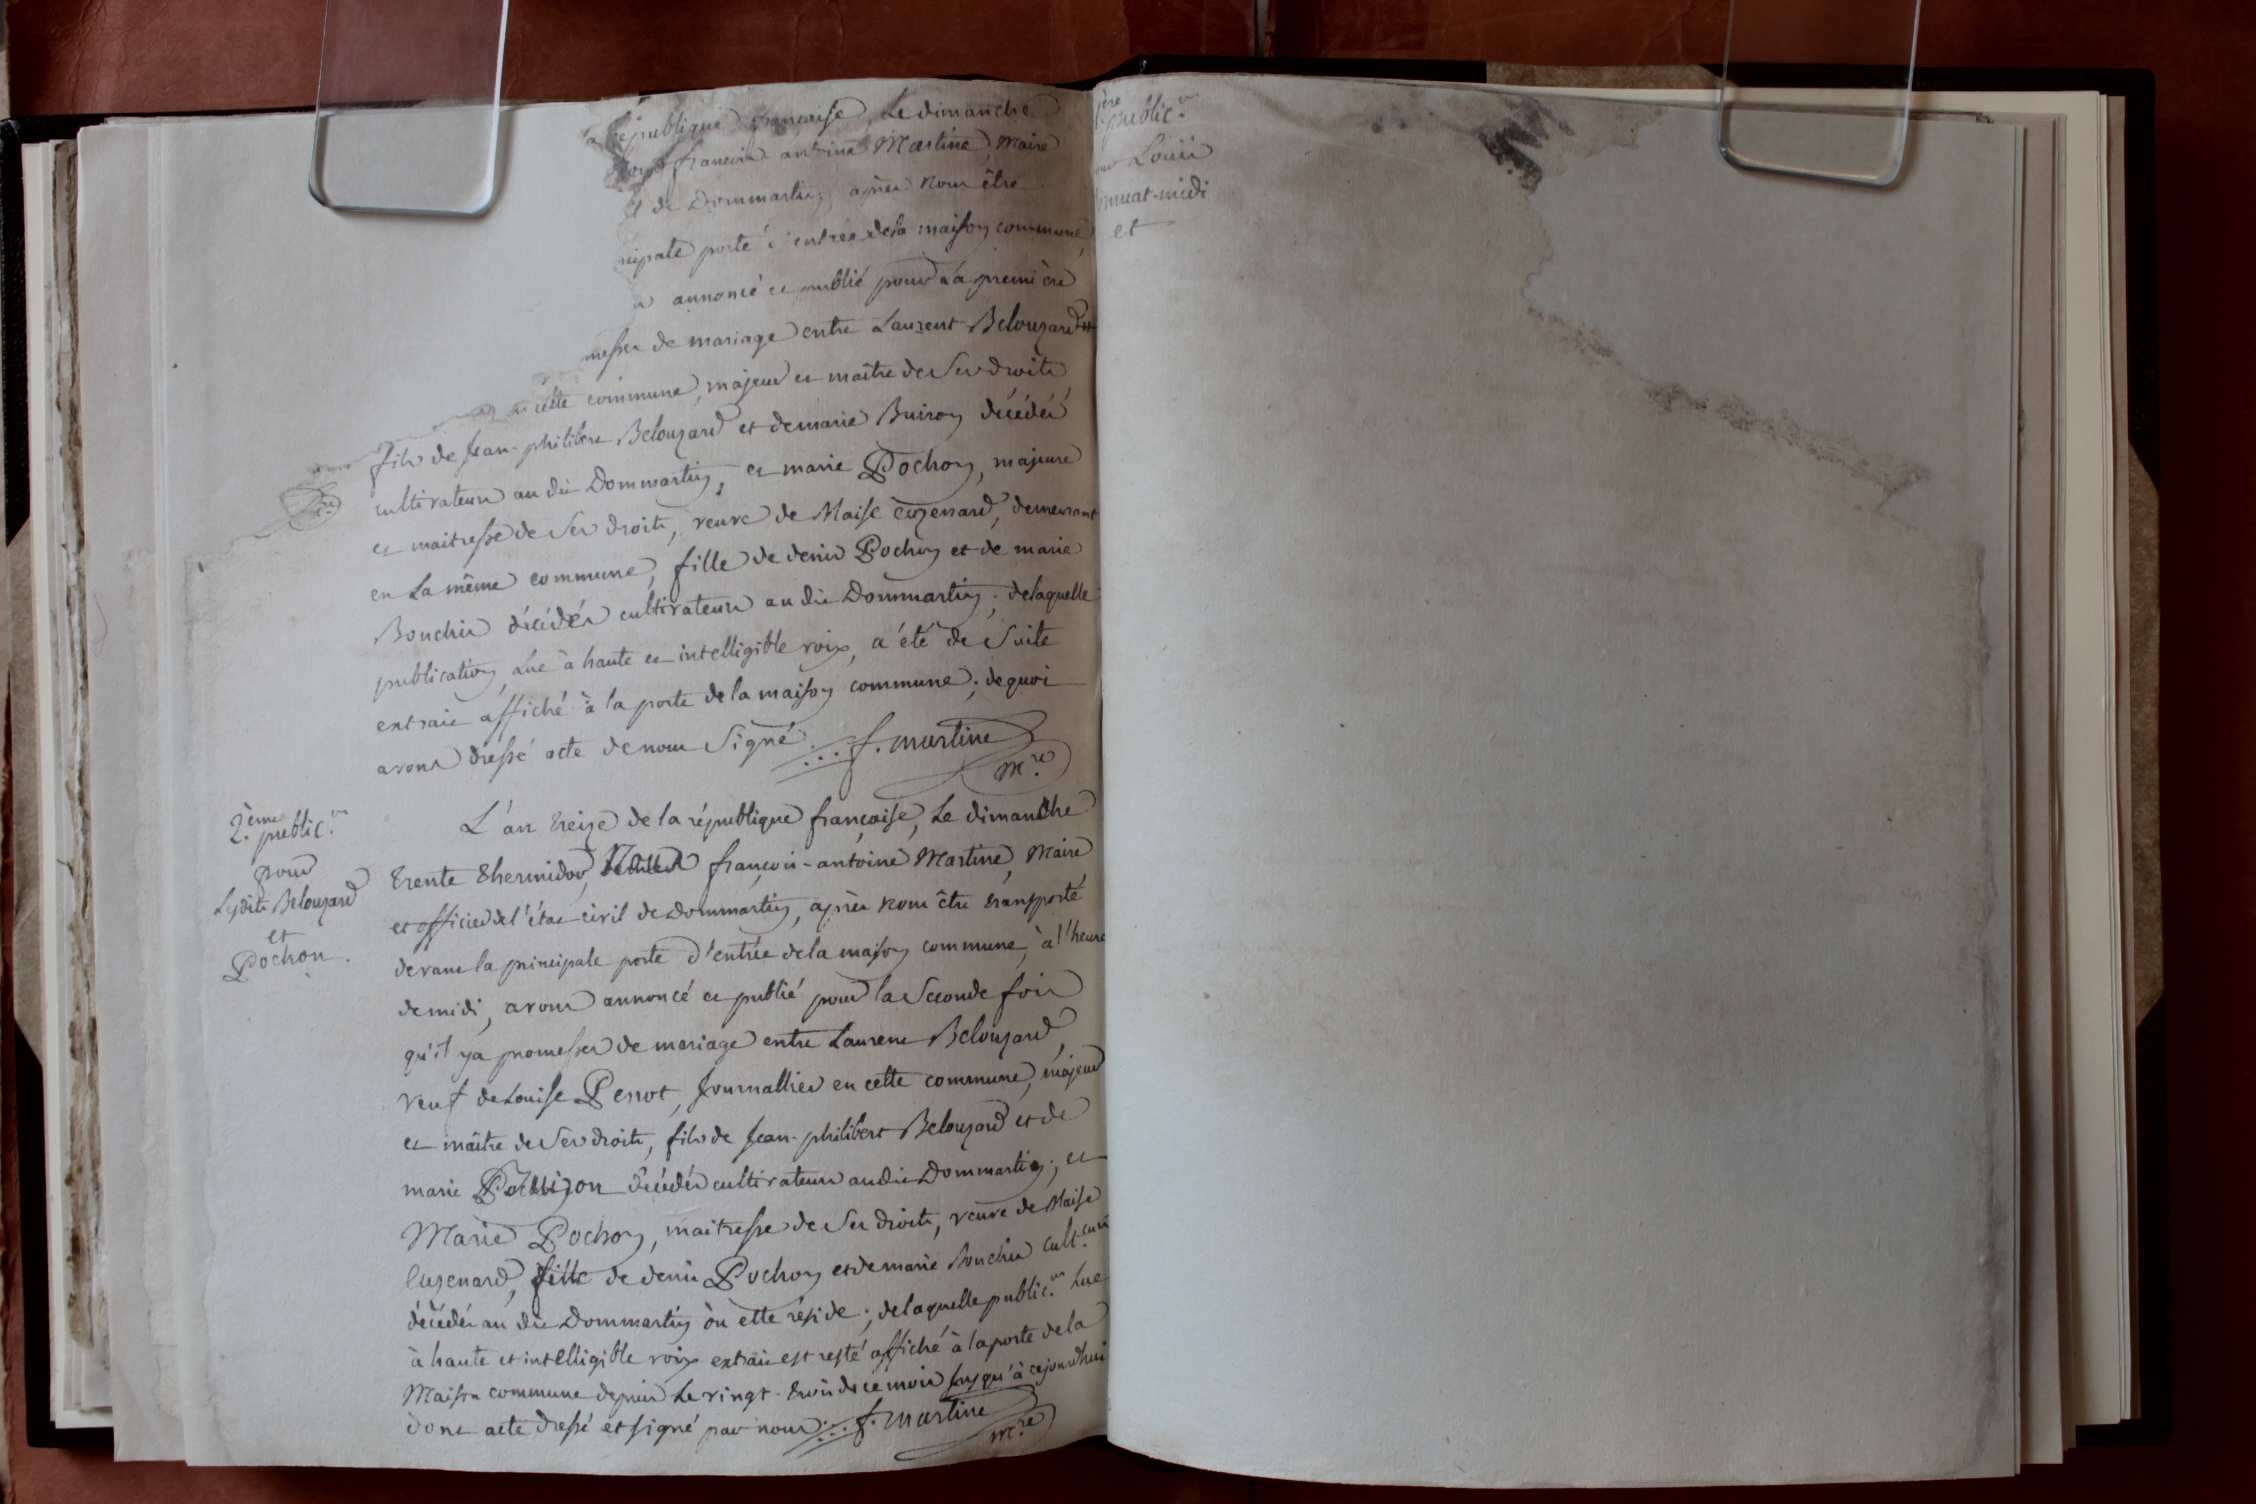 la république française, Le dimanche
françois antoine Martine, Maire
de Dommartin, après nous être
cipale porte d'entrée dela maison commune,
annoncé et publié pour la première
messes de mariage entre Laurent Belouzard
cette commune, majeur et maître de Ses droits
fils de Jean-philibert Belouzard et de marie Buison décédés
cultivateurs au dit Dommartin, et marie Pochon, majeure
et maitresse de Ses droits, veuve de Blaise Cuzenard, demeurant
en La même commune, fille de denis Pochon et de marie
Bouchis décédés cultivateurs au dit Dommartin; delaquelle
publication, Lue à haute et intelligible voix, a été de Suite
extrait affiché à la porte de la maison commune; de quoi
avons dressé acte de nous Signé. f. martine
m.re
2.ème public.on
pour
Belouzard
et
Pochon.
L'an treize de la république française, Le dimanche
trente thermidor, Nous françois-antoine Martine, Maire
et officier de l'état civil de Dommartin, après nous être transporté
devant la principale porte d'entrée dela maison commune, à l'heure
de midi, avons annoncé et publié pour la Seconde fois
qu'il y a promesses de mariage entre Laurent Belouzard,
veuf de Louise Perrot, Journallier en cette commune, majeur
et maître de Ses droits, fils de Jean-philibert Belouzard et de
marie décédés cultivateurs au dit Dommartin; et
Marie Pochon, maitresse de Ses droits, veuve de Blaise
Cuzenard, fille de denis Pochon et de marie Bouchis cult.eurs
décédés au dit Dommartin où elle réside; delaquelle public.on Lue
à haute et intelligible voix extrait est resté affiché à la porte de la
Maison commune depuis Le vingt-trois de ce mois jusqu'à cejourd'hui
dont acte dressé et signé par nous f. martine
m.re
public.on
Louis
midi
et